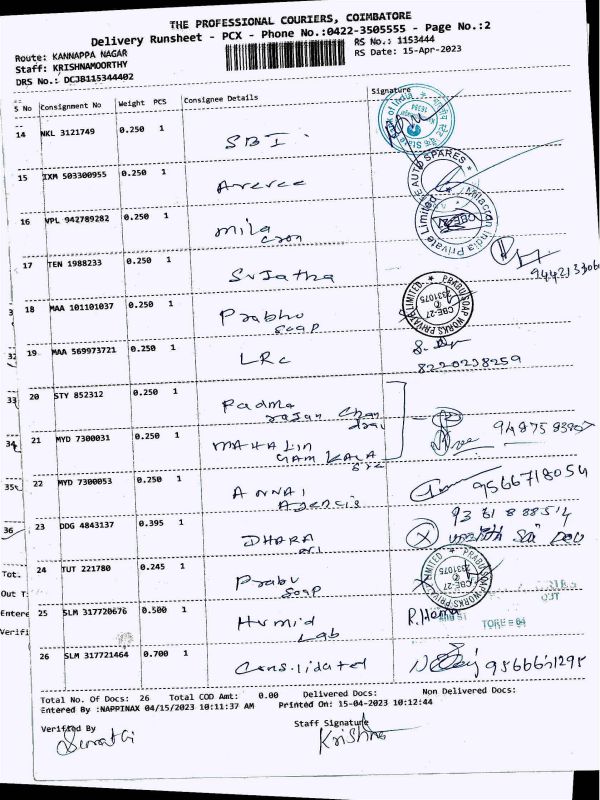 THE PROFESSIONAL COURIERS, COIMBATORE
Delivery Runsheet - PCX - Phone No.:0422-3505555 - Page No.:2
Route: KANNAPPA NAGAR
RS No.: 1153444
Staff: KRISHNAMOORTHY
RS Date: 15-Apr-2023
DRS No.: DCJB115344402
S No Consignment No Weight PCS Consignee Details Signature
14 NKL 3121749 0.250 1 SBI
15 IXM 503300955 0.250 1
AUTO SPARES
16 VPL 942789282 0.250 1 mila
cron
Milacron India Private Limited
17 TEN 1988233 0.250 1 Sujatha
18 MAA 101101037 0.250 1 Prabhu
soap
PRABU SOAP WORKS PRIVATE LIMITED
CBE-27
2331075
19 MAA 569973721 0.250 1 LRC
8220238259
20 STY 852312 0.250 1 Padma
rajan Chan
21 MYD 7300031 0.250 1 MAHALIN
GAM KALA
22 MYD 7300053 0.250 1 ANNAI
Agencis
9566718054
23 DDG 4843137 0.395 1 DHARA
24 TUT 221780 0.245 1 Prabu
soap
PRABU SOAP WORKS PRIVATE LIMITED
CBE-27
2331075
25 SLM 317720676 0.500 1 Humid
Lab
R.Hema
26 SLM 317721464 0.700 1 Consilidated
9566631295
33
34
35
36
Tot.
Out T
Entere
Verifi
Total No. Of Docs: 26 Total COD Amt: 0.00 Delivered Docs: Non Delivered Docs:
Entered By :NAPPINAX 04/15/2023 10:11:37 AM Printed On: 15-04-2023 10:12:44
Verified By
Staff Signature
Krishna